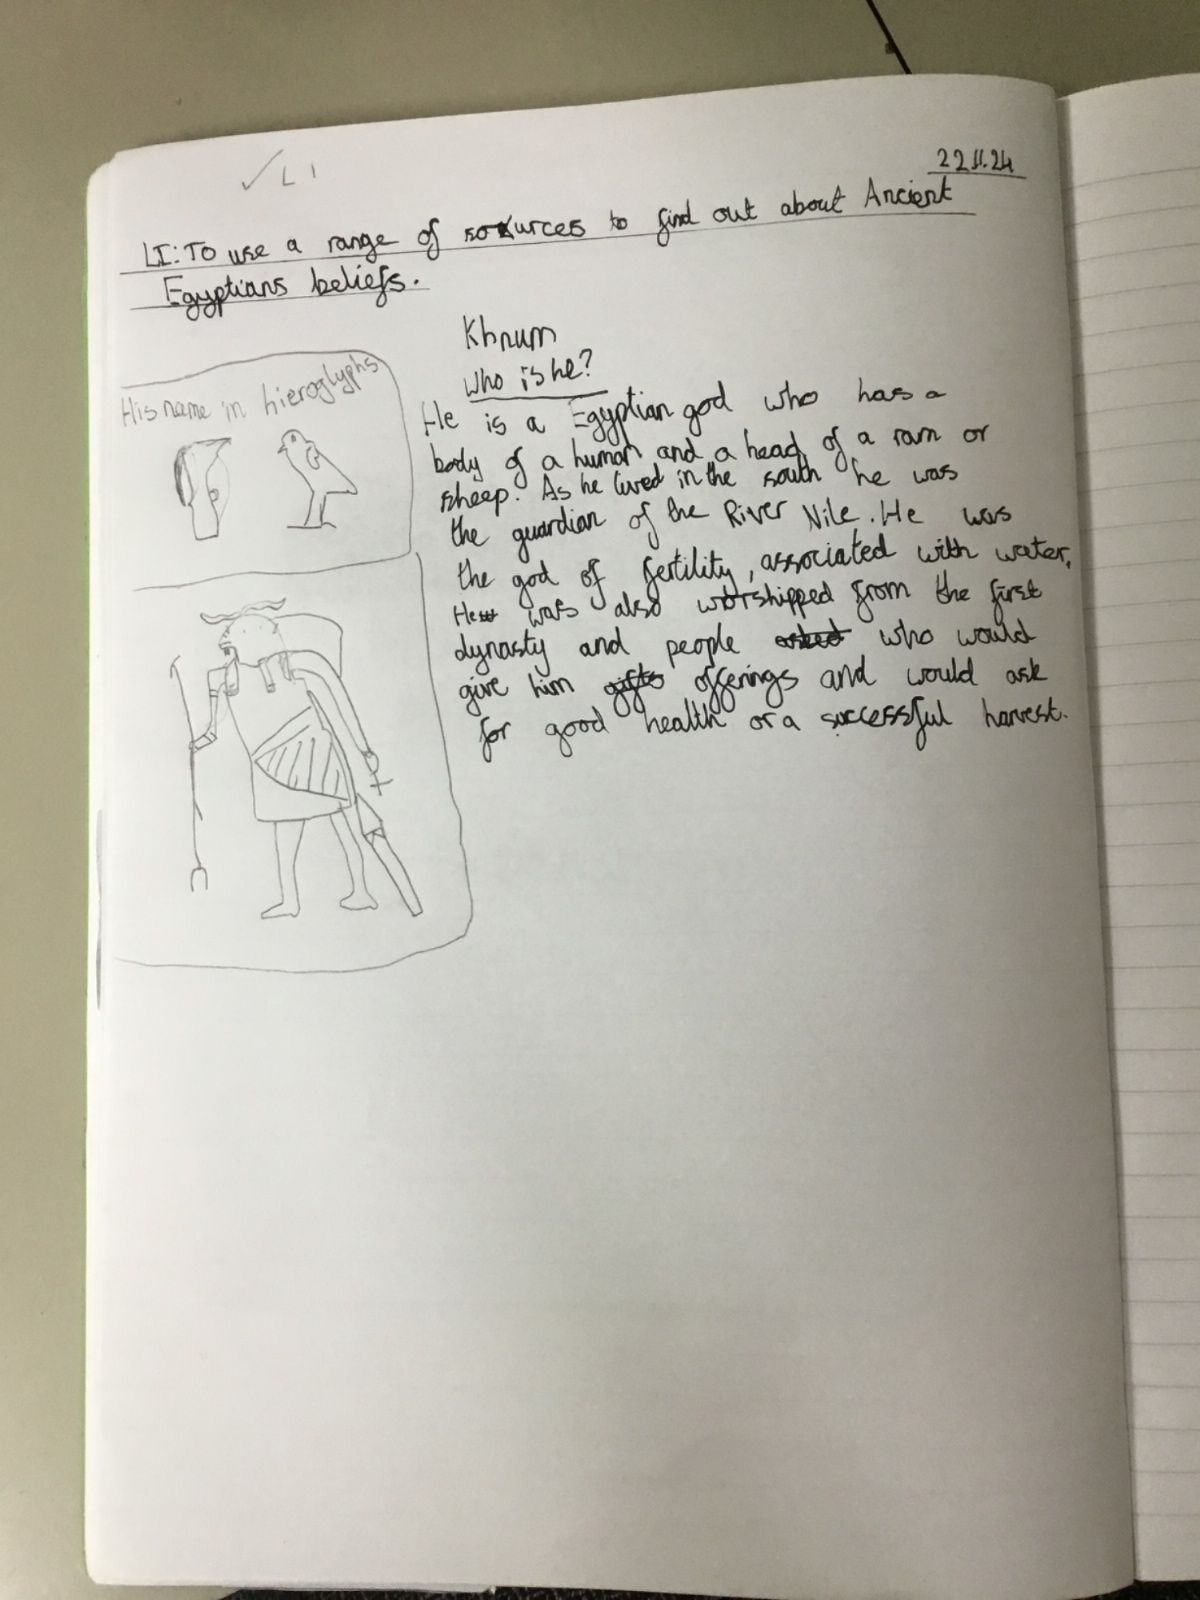 ✓ LI
22.11.24
LI: To use a range of sources to find out about Ancient
Egyptians beliefs.
His name in hieroglyphs
Khnum
Who is he?
He is a Egyptian god who has a
body of a human and a head of a ram or
sheep. As he lived in the south he was
the guardian of the River Nile. He was
the god of fertility, associated with water.
He was also worshipped from the first
dynasty and people who would
give him gifts offerings and would ask
for good health or a successful harvest.